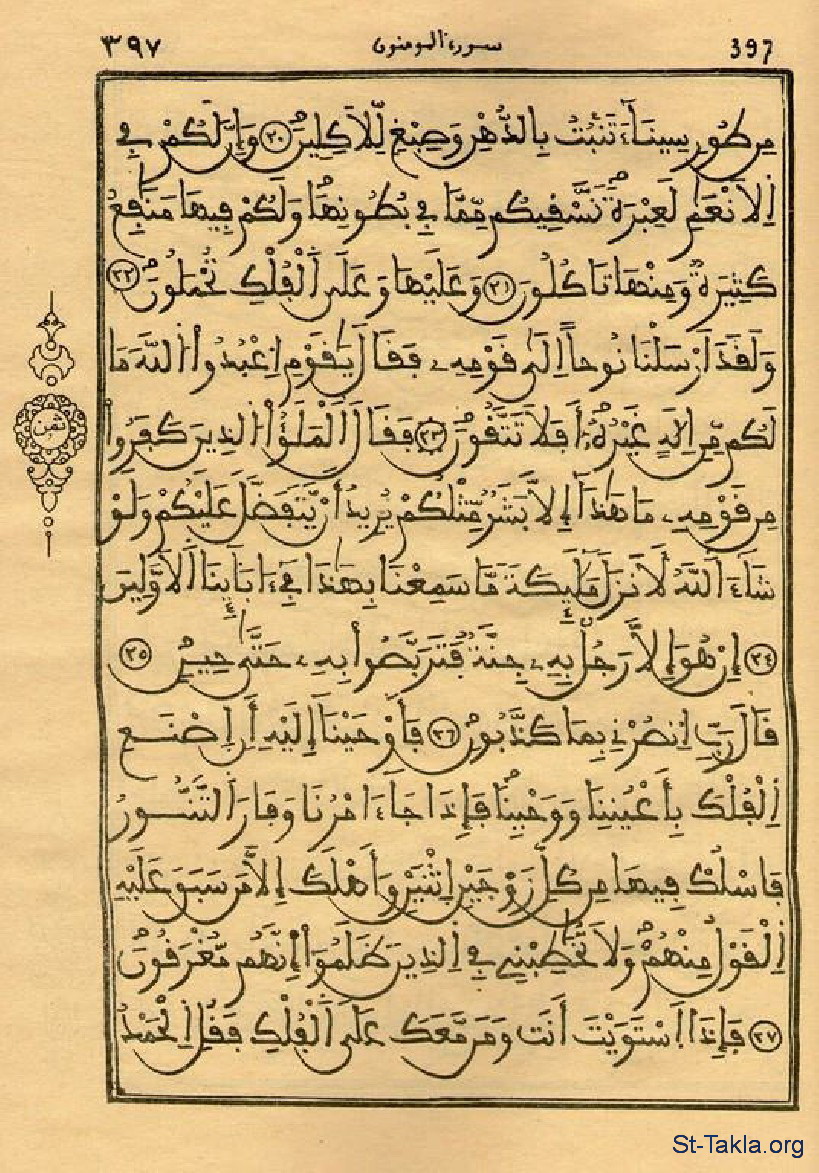 ٣٩٧ سورة المومنون 397
مِن طُورِ سِينَآءَ تَنۢبُتُ بِالدُّهْنِ وَصِبْغٍ لِّلَاكِلِينَ ٢٠ وَإِنَّ لَكُمْ فِے
اِ۬لَانْعَٰمِ لَعِبْرَةٗ نَّسْقِيكُم مِّمَّا فِے بُطُونِهَا وَلَكُمْ فِيهَا مَنَٰفِعُ
كَثِيرَةٞ وَمِنْهَا تَاكُلُونَ ٢١ وَعَلَيْهَا وَعَلَى اَ۬لْفُلْكِ تُحْمَلُونَ ٢٢
وَلَقَدَ اَرْسَلْنَا نُوحاً اِلَىٰ قَوْمِهِۦ فَقَالَ يَٰقَوْمِ اِ۟عْبُدُوا۟ اُ۬للَّهَ مَا
لَكُم مِّنِ اِلَٰهٍ غَيْرُهُۥٓ أَفَلَا تَتَّقُونَ ٢٣ فَقَالَ اَ۬لْمَلَؤُا۟ اُ۬لذِينَ كَفَرُوا۟
مِن قَوْمِهِۦ مَا هَٰذَآ إِلَّا بَشَرٞ مِّثْلُكُمْ يُرِيدُ أَنْ يَّتَفَضَّلَ عَلَيْكُمْ وَلَوْ
شَآءَ اَ۬للَّهُ لَأَنزَلَ مَلَٰٓئِكَةٗ مَّا سَمِعْنَا بِهَٰذَا فِےٓ ءَابَآئِنَا اَ۬لَاوَّلِينَ
٢٤ إِنْ هُوَ إِلَّا رَجُلُۢ بِهِۦ جِنَّةٞ فَتَرَبَّصُوا۟ بِهِۦ حَتَّىٰ حِينٖ ٢٥
قَالَ رَبِّ اِ۟نصُرْنِے بِمَا كَذَّبُونِ ٢٦ فَأَوْحَيْنَآ إِلَيْهِ أَنِ اِ۪صْنَعِ
اِ۬لْفُلْكَ بِأَعْيُنِنَا وَوَحْيِنَا فَإِذَا جَآءَ امْرُنَا وَفَارَ اَ۬لتَّنُّورُ
فَاسْلُكْ فِيهَا مِن كُلِّ زَوْجَيْنِ اِ۪ثْنَيْنِ وَأَهْلَكَ إِلَّا مَن سَبَقَ عَلَيْهِ
اِ۬لْقَوْلُ مِنْهُمْ وَلَا تُخَٰطِبْنِے فِے اِ۬لذِينَ ظَلَمُوٓا۟ إِنَّهُم مُّغْرَقُونَ
٢٧ فَإِذَا اَ۪سْتَوَيْتَ أَنتَ وَمَن مَّعَكَ عَلَى اَ۬لْفُلْكِ فَقُلِ اِ۬لْحَمْدُ
ثمن
St-Takla.org